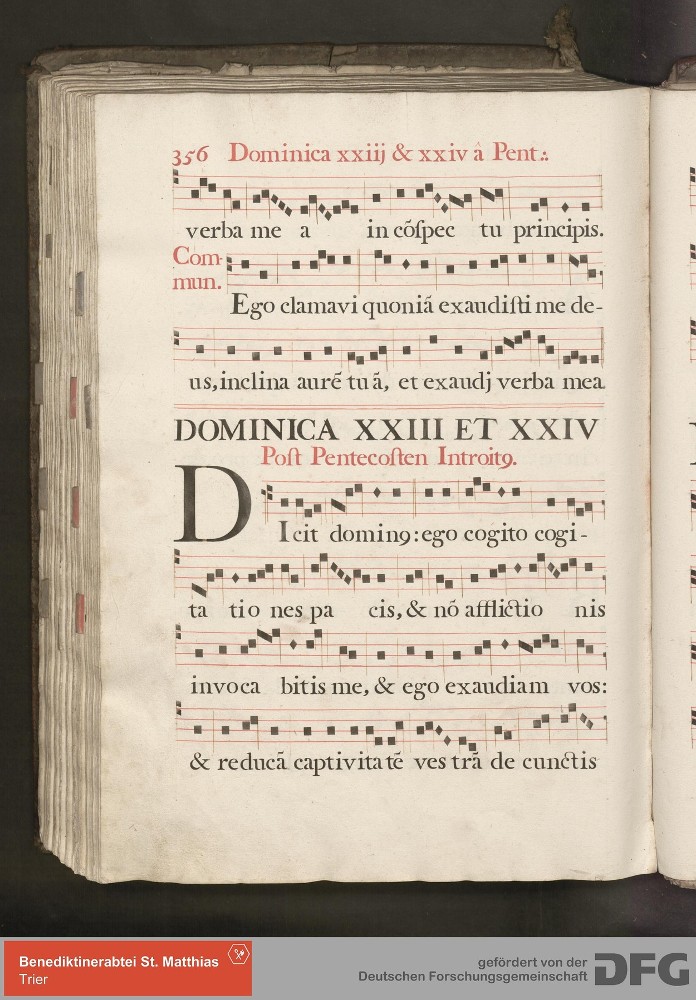 356 Dominica xxiij & xxiv â Pent.:.
verba me a in cõſpec tu principis.
Com-
mun.
Ego clamavi quoniã exaudiſti me de-
us, inclina aurẽ tu ã, et exaudj verba mea
DOMINICA XXIII ET XXIV
Poſt Pentecoſten Introitꝯ.
DIcit dominꝯ: ego cogito cogi-
ta tio nes pa cis, & nõ afflictio nis
invoca bitis me, & ego exaudiam vos:
& reducã captivita tẽ ves trã de cunctis
Benediktinerabtei St. Matthias
Trier
gefördert von der
Deutschen Forschungsgemeinschaft
DFG